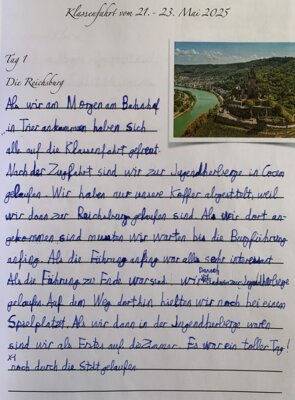 Klassenfahrt vom 21. - 23. Mai 2025
Tag 1
Die Reichsburg
Als wir am Morgen am Bahnhof
in Trier ankammen haben sich
alle auf die Klassenfahrt gefreut.
Nach der Zugfahrt sind wir zur Jugendherberge in Cocem
gelaufen. Wir haben nur unsere Koffer abgestellt, weil
wir dann zur Reichsburg gelaufen sind. Als wir dort an-
gekommen sind mussten wir warten bis die Burgführung
anfing. Als die Führung anfing war alles sehr interesant.
Als die Führung zu Ende war sind wir Danach zur Jugendherberge
gelaufen. Auf dem Weg dorthin hielten wir noch bei einem
Spielplatzt. Als wir dann in der Jugendherberge waren
sind wir als Erstes auf die Zimmer. Es war ein toller Tag!
noch durch die Stat gelaufen